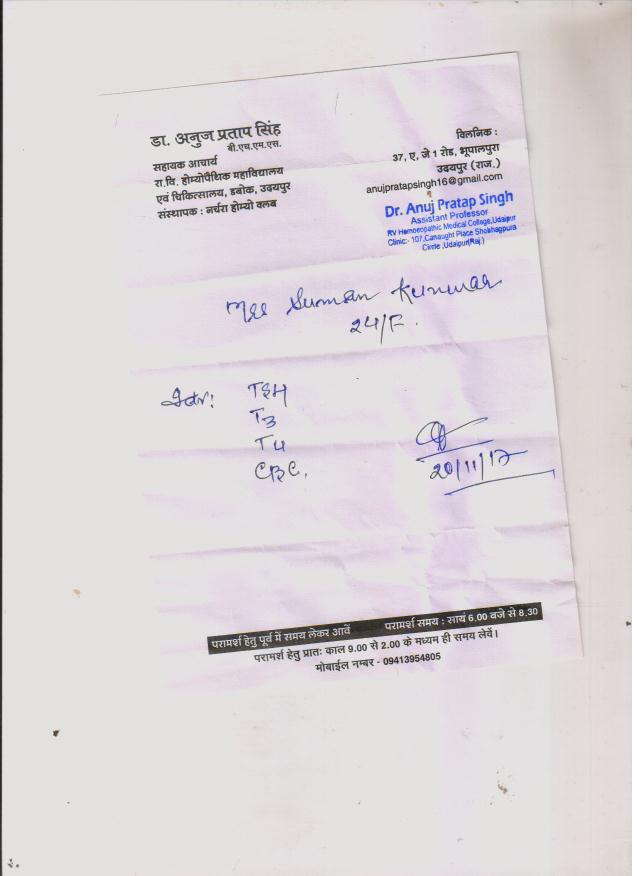 डा. अनुज प्रताप सिंह
बी.एच.एम.एस.
सहायक आचार्य
रा.वि. होम्योपैथिक महाविद्यालय
एवं चिकित्सालय, डबोक, उदयपुर
संस्थापक : नर्चरा होम्यो क्लब
क्लिनिक :
37, ए, जे 1 रोड, भूपालपुरा
उदयपुर (राज.)
anujpratapsingh16@gmail.com
Dr. Anuj Pratap Singh
Assistant Professor
RV Homoeopathic Medical College,Udaipur
Clinic:- 107,Canaught Place Shobhagpura
Circle ,Udaipur(Raj.)
Suman Kunwar
24/F.
TSH
T3
T4
CBC.
20/11/17
परामर्श हेतु पूर्व में समय लेकर आवें परामर्श समय : सायं 6.00 बजे से 8.30
परामर्श हेतु प्रातः काल 9.00 से 2.00 के मध्यम ही समय लेवें।
मोबाईल नम्बर - 09413954805